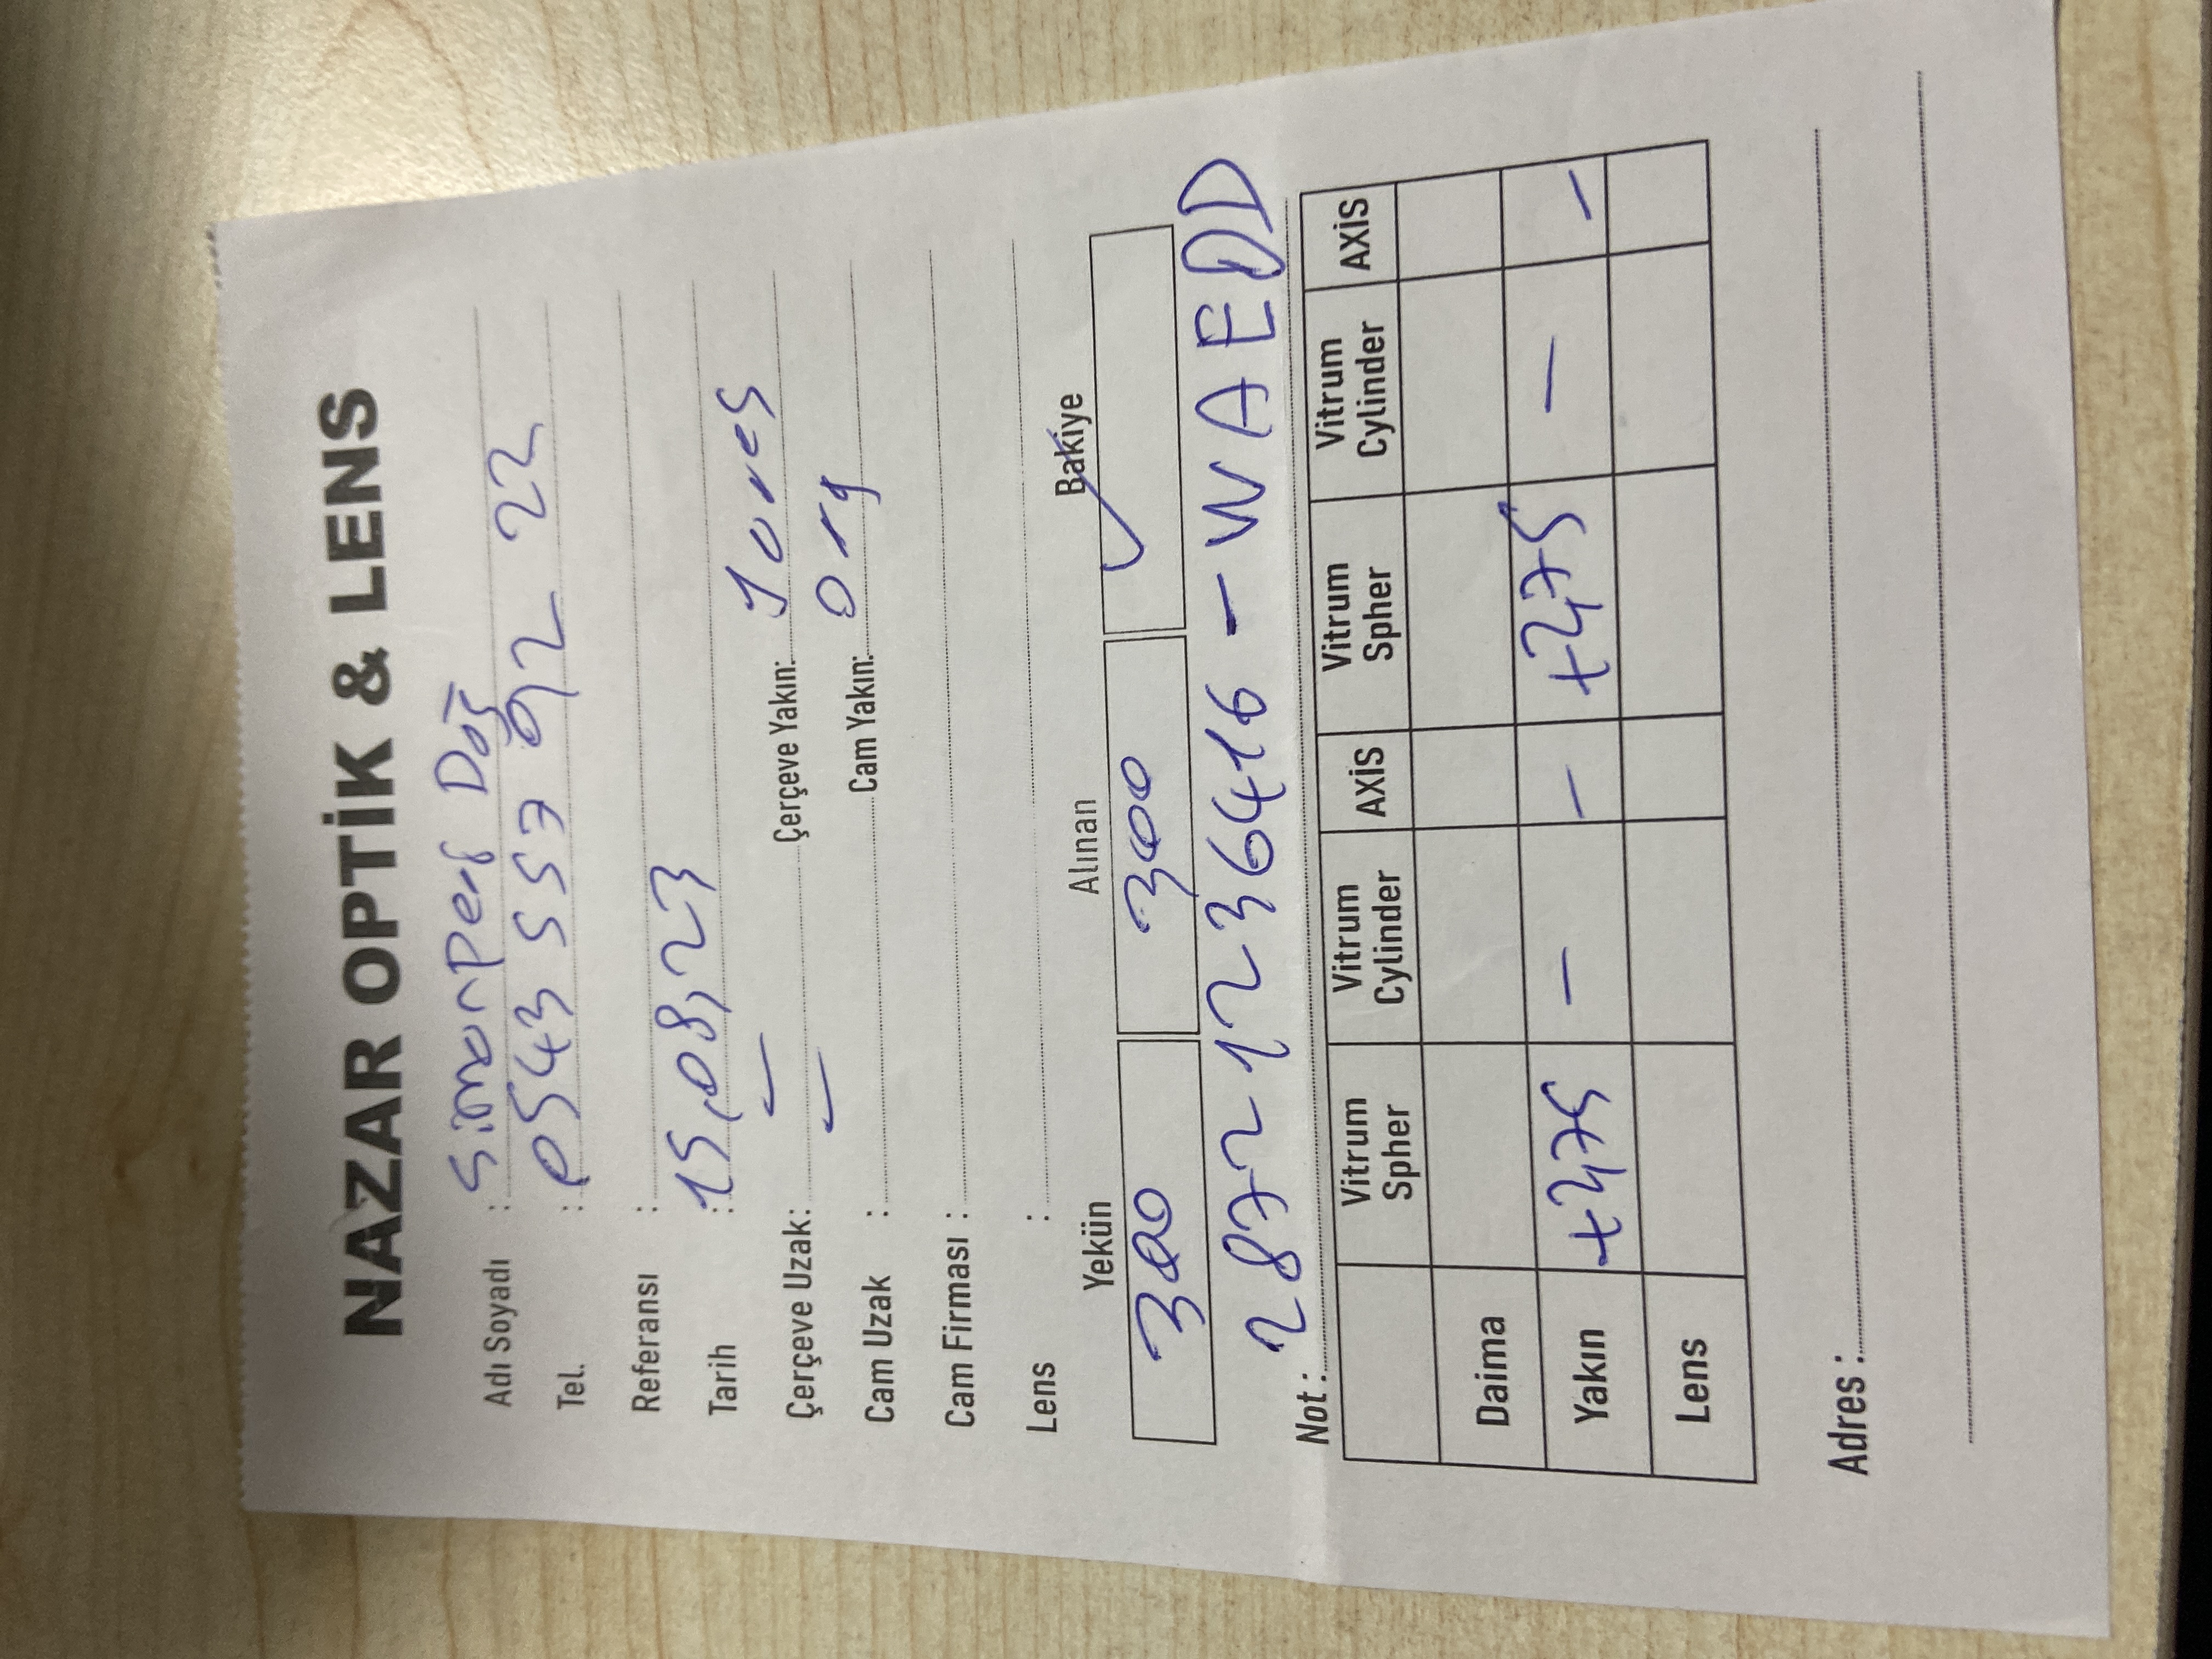 NAZAR OPTİK & LENS
Adı Soyadı : Simonpers Doğ
Tel. : 0543 557 92 22
Referansı :
Tarih : 15,08,23
Çerçeve Uzak: — Çerçeve Yakın:
Cam Uzak : — Cam Yakın: Org
Cam Firması :
Lens :
Yekün Alınan Bakiye
300 300 ✓
Not : 28721236416 - WAEDD
Vitrum Spher Vitrum Cylinder AXİS Vitrum Spher Vitrum Cylinder AXİS
Daima
Yakın +2,75 — — +2,75 — —
Lens
Adres :